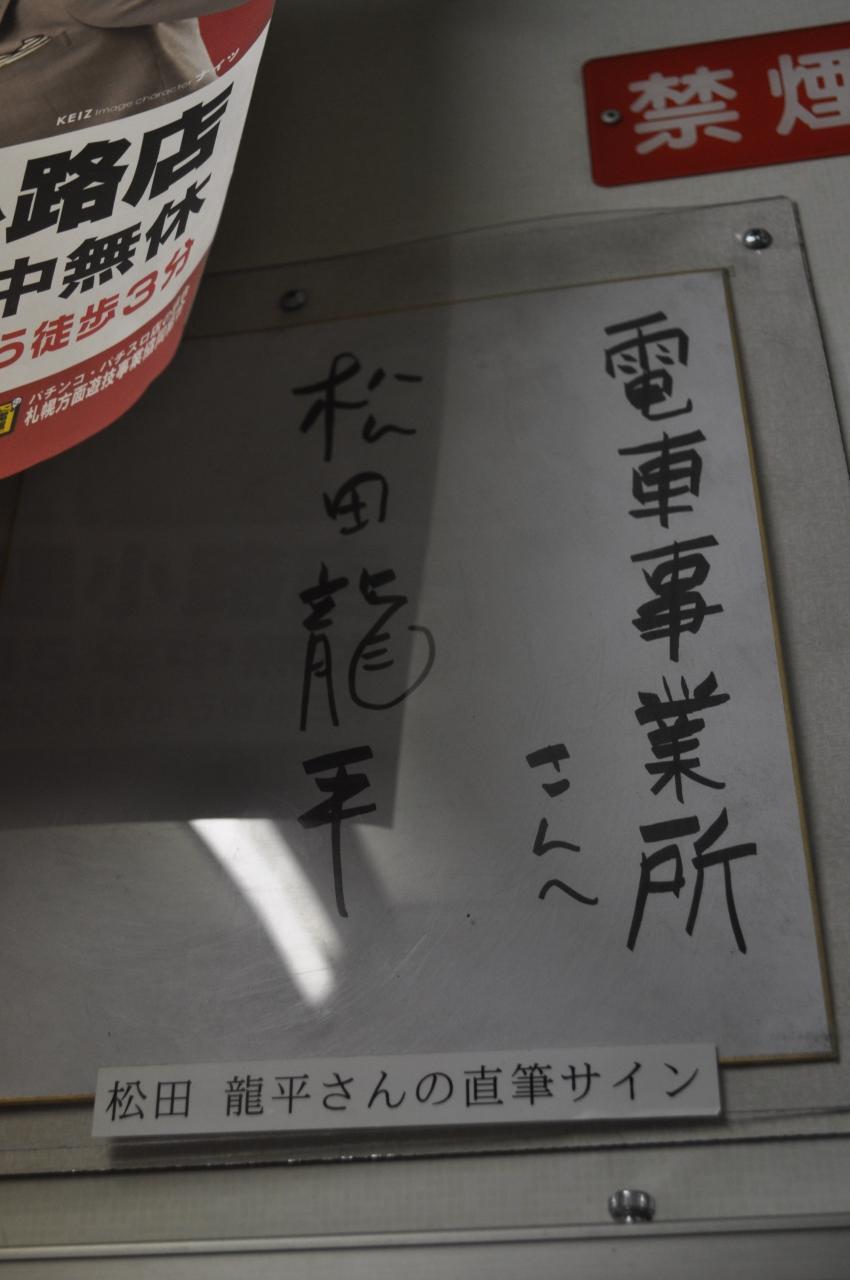 KEIZ Image character ナイツ
路店
中無休
ら徒歩3分
パチンコ・パチスロ
札幌方面遊技事業協同組合
禁煙
電車事業所
さんへ
松田龍平
松田 龍平さんの直筆サイン